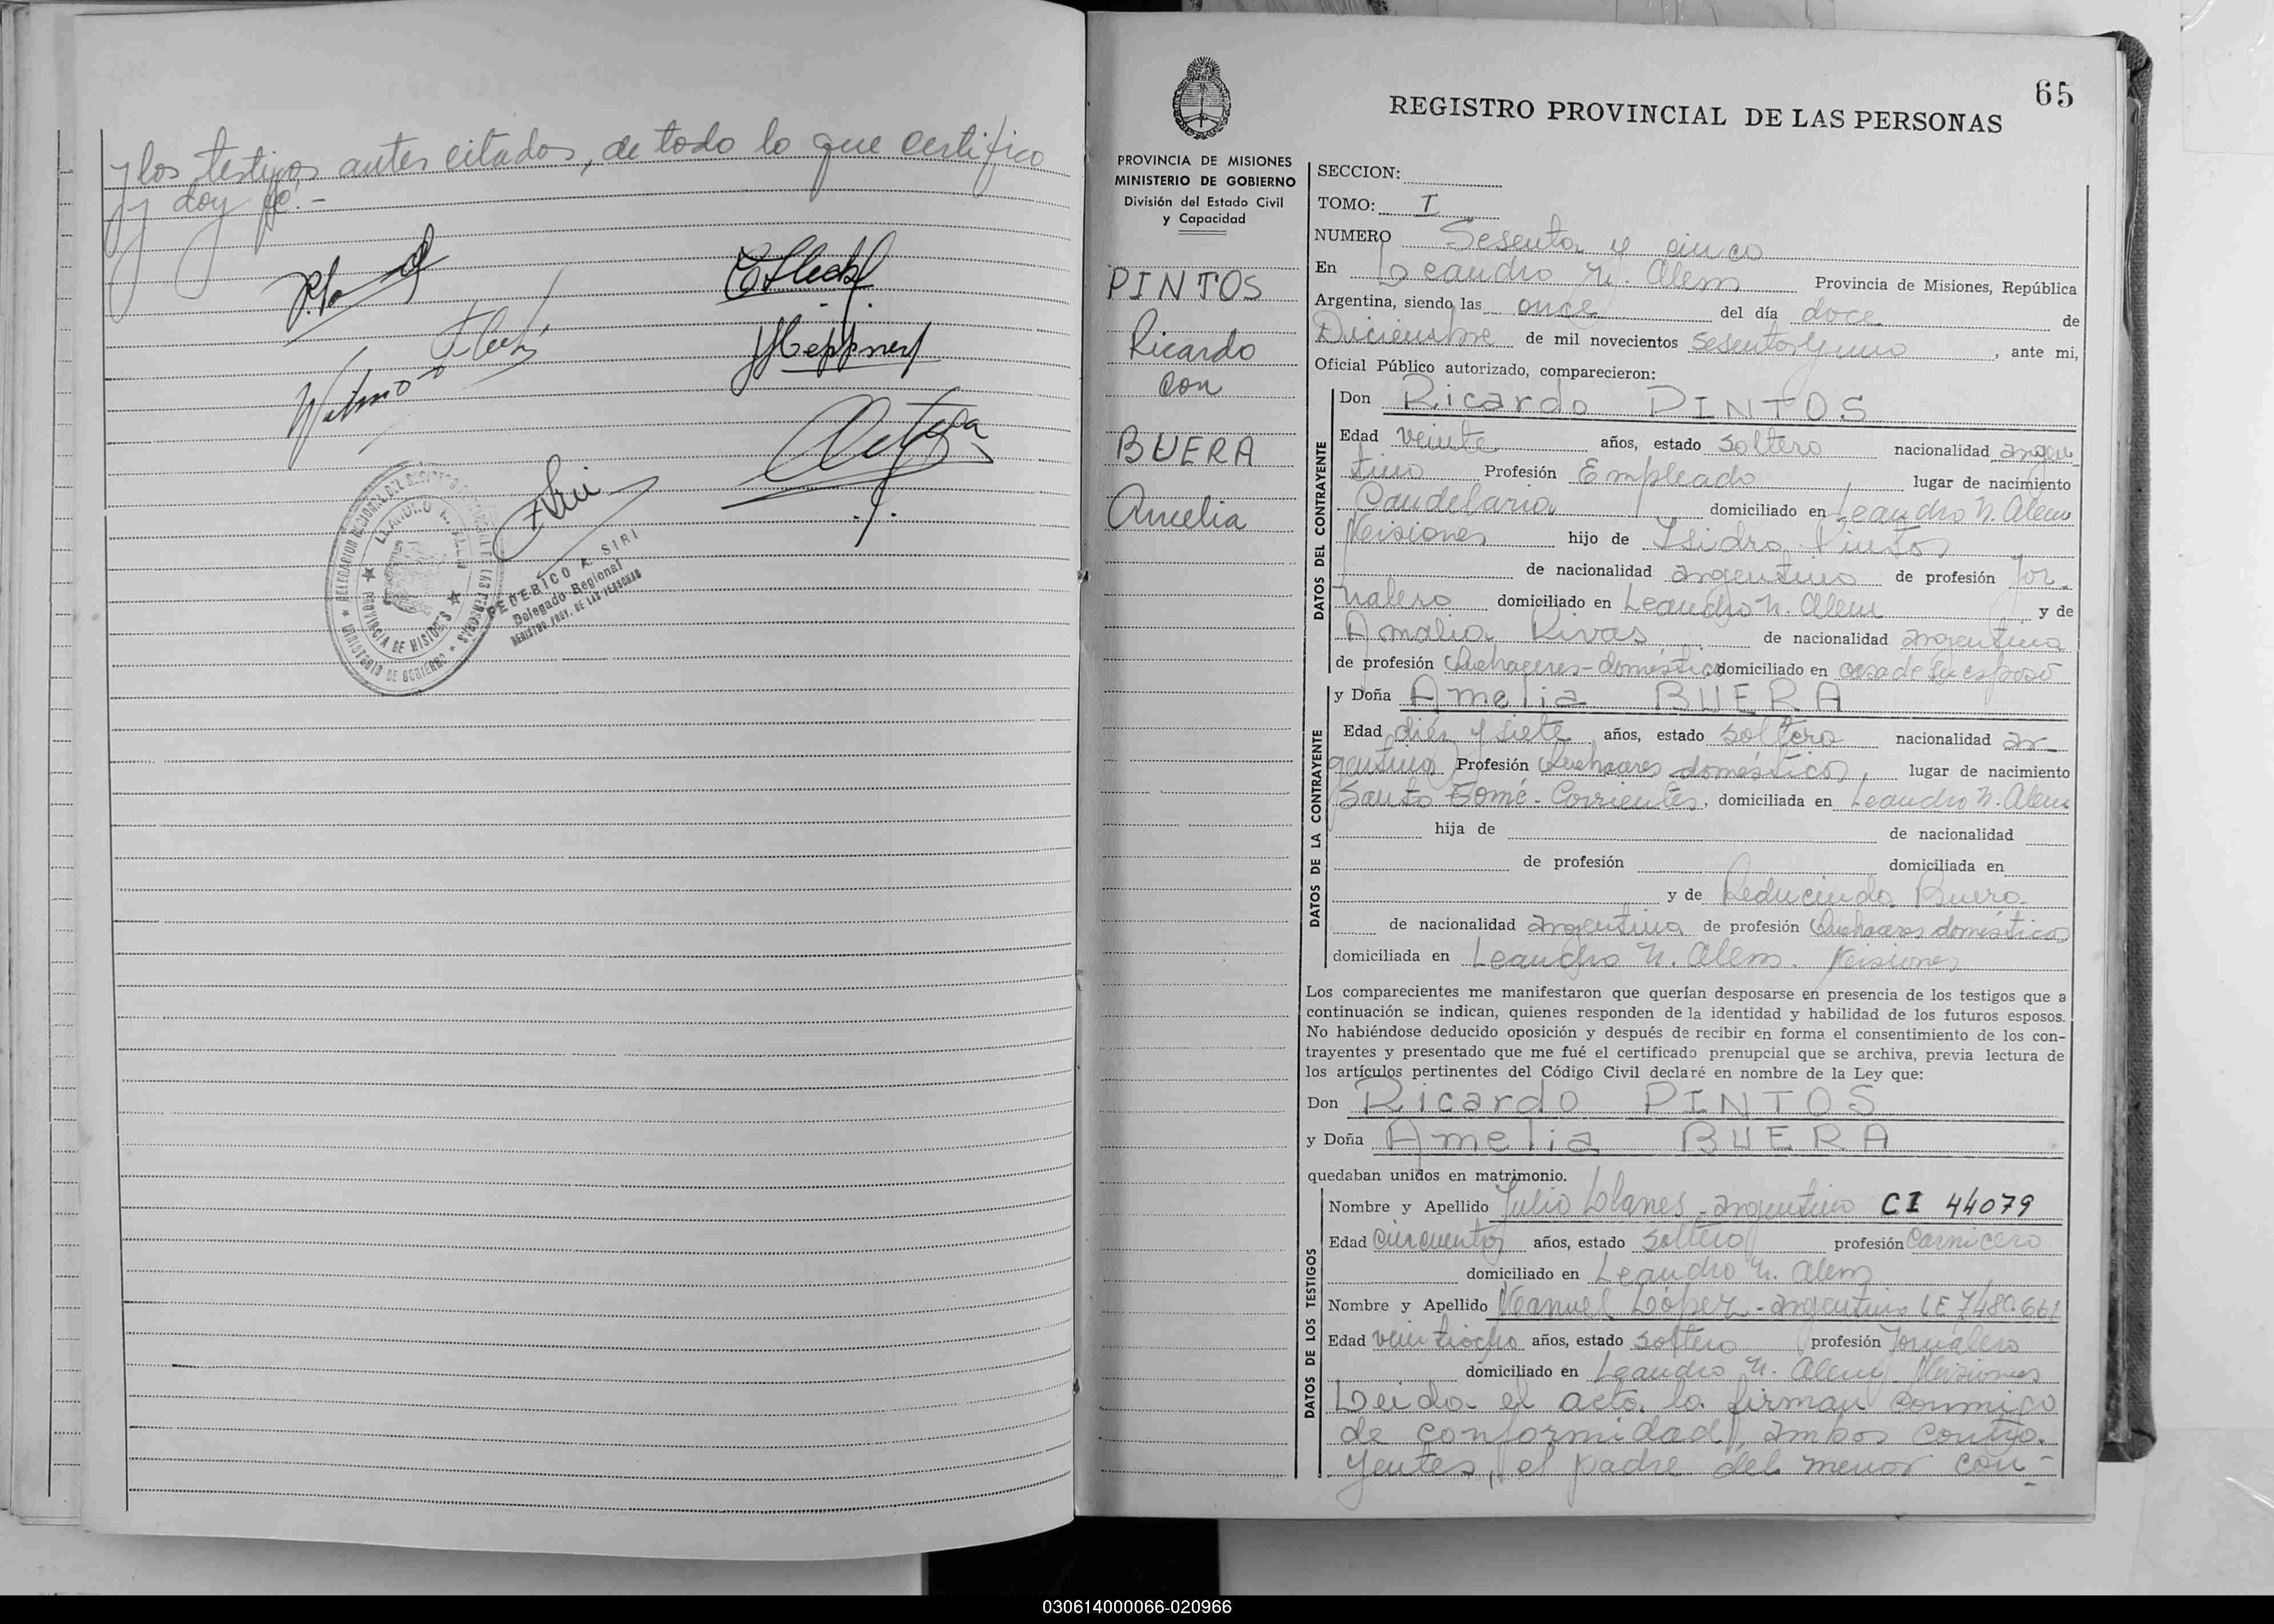 y los testigos antes citados, de todo lo que certifico
y doy fé.-
FEDERICO A. SIRI
Delegado Regional
REGISTRO PROV. DE LAS PERSONAS
LEANDRO N. ALEM
PROVINCIA DE MISIONES
MINISTERIO DE GOBIERNO
65
REGISTRO PROVINCIAL DE LAS PERSONAS
PROVINCIA DE MISIONES
MINISTERIO DE GOBIERNO
División del Estado Civil
y Capacidad
PINTOS
Ricardo
con
BUERA
Amelia
SECCION:
TOMO: I
NUMERO Sesenta y cinco
En Leandro N. Alem Provincia de Misiones, República
Argentina, siendo las once del día doce de
Diciembre de mil novecientos sesenta y uno, ante mi,
Oficial Público autorizado, comparecieron:
DATOS DEL CONTRAYENTE
Don Ricardo PINTOS
Edad veinte años, estado soltero nacionalidad argen-
tino Profesión Empleado lugar de nacimiento
Candelaria domiciliado en Leandro N. Alem
Misiones hijo de Isidro Pintos
de nacionalidad argentino de profesión Jor-
nalero domiciliado en Leandro N. Alem y de
Amalia Rivas de nacionalidad argentina
de profesión Quehaceres-domésticos domiciliado en casa de su esposo
DATOS DE LA CONTRAYENTE
y Doña Amelia BUERA
Edad diez y siete años, estado soltera nacionalidad ar-
gentina Profesión Quehaceres domésticos, lugar de nacimiento
Santo Tomé-Corrientes, domiciliada en Leandro N. Alem
hija de de nacionalidad
de profesión domiciliada en
y de Reducinda Buera
de nacionalidad argentina de profesión Quehaceres domésticos
domiciliada en Leandro N. Alem. Misiones
Los comparecientes me manifestaron que querían desposarse en presencia de los testigos que a
continuación se indican, quienes responden de la identidad y habilidad de los futuros esposos.
No habiéndose deducido oposición y después de recibir en forma el consentimiento de los con-
trayentes y presentado que me fué el certificado prenupcial que se archiva, previa lectura de
los artículos pertinentes del Código Civil declaré en nombre de la Ley que:
Don Ricardo PINTOS
y Doña Amelia BUERA
quedaban unidos en matrimonio.
DATOS DE LOS TESTIGOS
Nombre y Apellido Julio Llanes - argentino CI 44079
Edad cincuenta años, estado soltero profesión Carnicero
domiciliado en Leandro N. Alem
Nombre y Apellido Manuel López - argentino LE 7.480.661
Edad veintiocho años, estado soltero profesión Jornalero
domiciliado en Leandro N. Alem Misiones
Leida el acta la firman conmigo
de conformidad, ambos contra-
yentes, el padre del menor con-
030614000066-020966